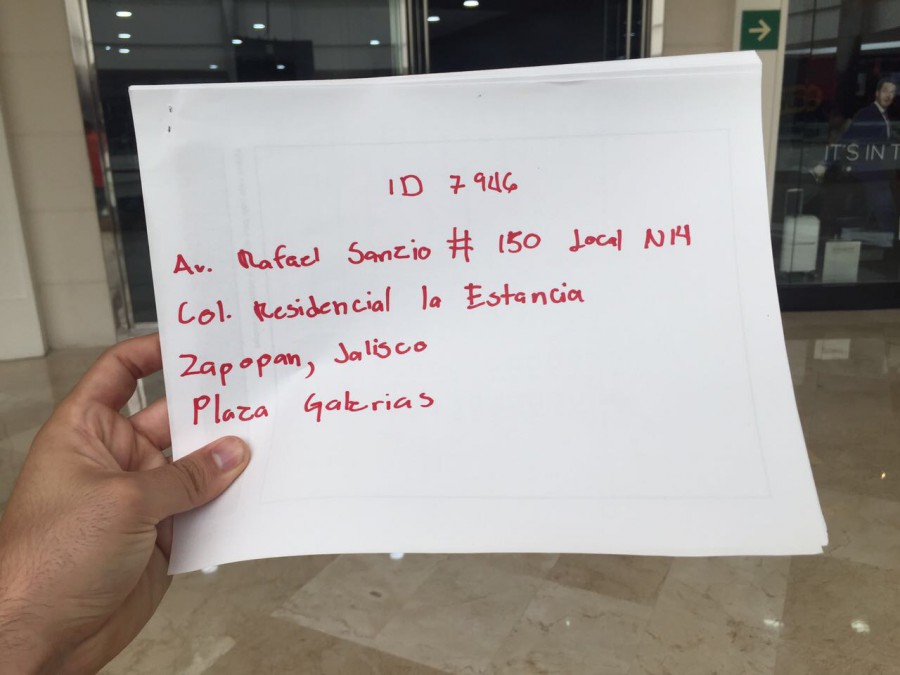 ID 7946
Av. Rafael Sanzio # 150 Local N14
Col. Residencial la Estancia
Zapopan, Jalisco
Plaza Galerias
IT'S IN T